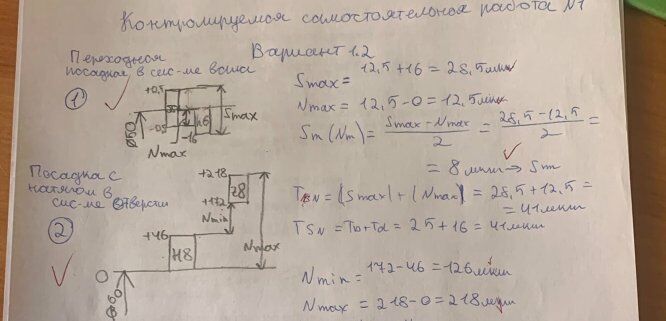 Контролируемся самостоятельная работа N1
Вариант 1.2
Переходная
посадка в сис-ме вала
1
+0,5
Smax
h6
-16
Nmax
Smax = 12,5+16 = 28,5мкм
Nmax = 12,5-0 = 12,5мкм
Sm (Nm) = Smax-Nmax / 2 = 28,5-12,5 / 2 =
= 8 мкм → Sm
TSN = |Smax| + |Nmax| = 28,5+12,5 =
= 41мкм
TSN = TD+Td = 25+16 = 41мкм
Посадка с
натягом в
сис-ме отверстия
2
+218
z8
+172
Nmin
Nmax
+46
H8
0
Nmin = 172-46 = 126мкм
Nmax = 218-0 = 218мкм